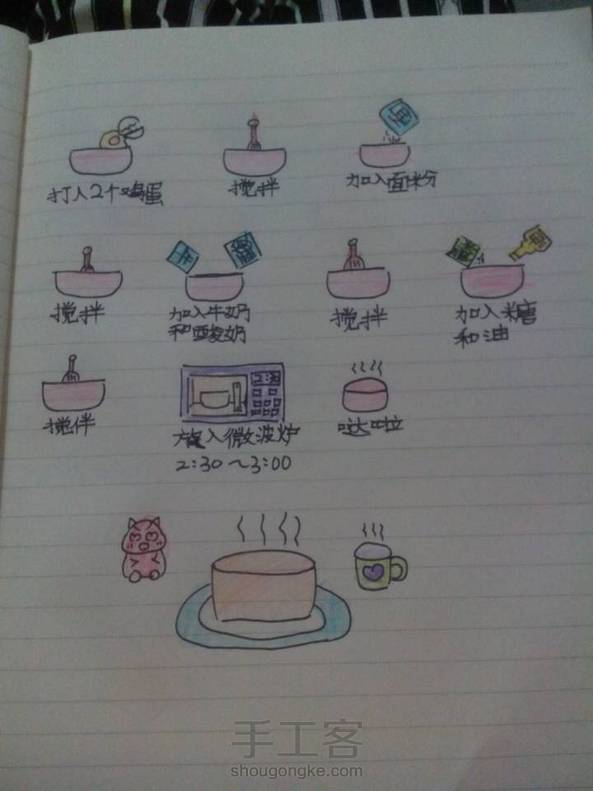 打入2个鸡蛋
搅拌
加入面粉
搅拌
加入牛奶
和酸奶
搅拌
加入糖
和油
搅伴
放入微波炉
2:30～3:00
哒啦
手工客
shougongke.com